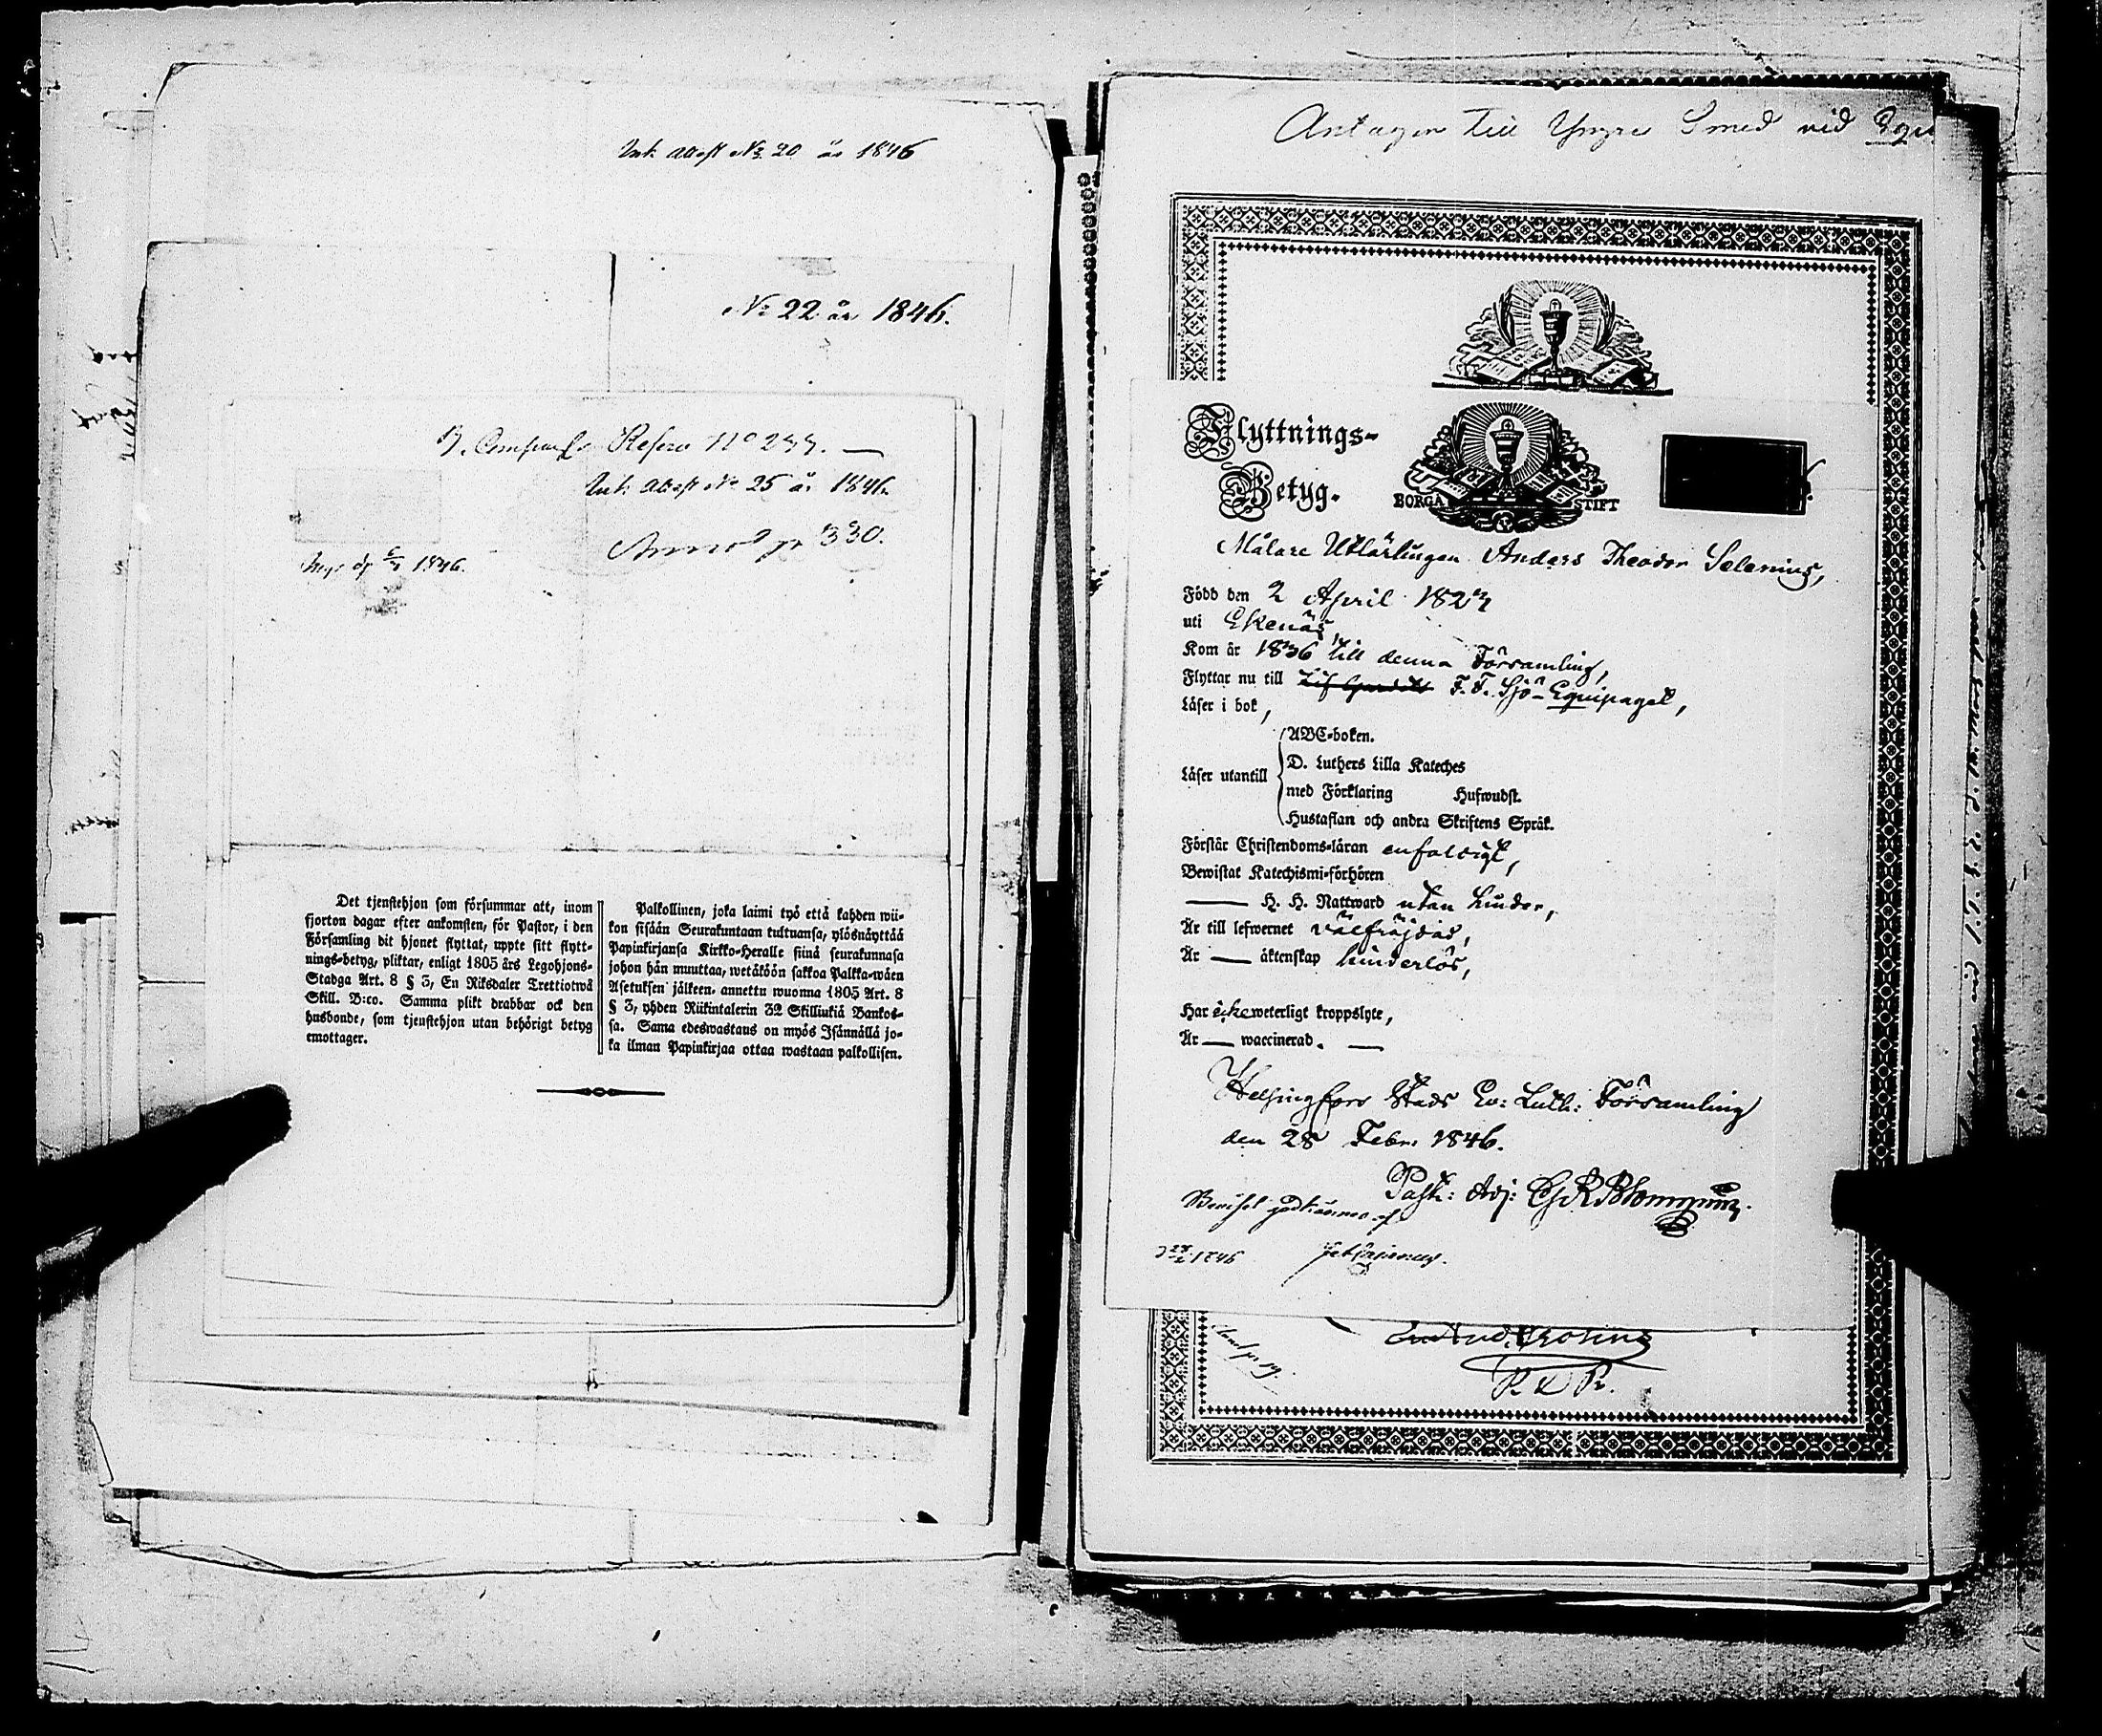 Ink. attest No 20 år 1846
No 22 år 1846.
Refero No
Ink. attest No 25 år 1846.
330.
1846.
Det tjenstehjon som försummar att, inom
fjorton dagar efter ankomsten, för Pastor, i den
Församling dit hjonet flyttat, uppte sitt flytt-
nings-betyg, pliktar, enligt 1805 års Legohjons-
Stadga Art. 8 § 3, En Riksdaler Trettiotwå
Skill. B:co. Samma plikt drabbar ock den
husbonde, som tjenstehjon utan behörigt betyg
emottager.
Palkollinen, joka laimi lyö että kahden wii-
kon sisään Seurakuntaan tultuansa, ylösnäyttää
Papinkirjansa Kirkko-Heralle siinä seurakunnasa
johon hän muuttaa, wetäköön sakkoa Palkka-wäen
Asetuksen jälkeen annettu wuonna 1805 Art. 8
§ 3, yhden Riikintalerin 32 Skillinkiä Bankos-
sa. Sama edeswastaus on myös Isännällä jo-
ka ilman Papinkirjaa ottaa wastaan palkollisen.
Antagen till Yngre Smed vid
Flyttnings-
Betyg.
BORGÅ STIFT
Målare Utlärlingen Anders Theodor Selenius,
Född den 2 April 1824
uti Ekenäs,
Kom år 1836 till denna Församling,
Flyttar nu till F. F. Sjö-Equipaget,
Läser i bok,
Läser utantill
ABC-boken.
D. Luthers Lilla Kateches
med Förklaring Hufwudst.
Hustaflan och andra Skriftens Språk.
Förstår Christendoms-läran enfaldigt,
Bewistat Katechismi-förhören
— H. H. Nattward utan hinder,
Är till lefwernet välfräjdad,
Är — äktenskap hinderlös,
Har icke weterligt kroppslyte,
Är — waccinerad. —
Helsingfors Stads Ev: Luth: Församling
den 28 Febr. 1846.
Past: Adj: G R Blomqvist.
1846
R & R.